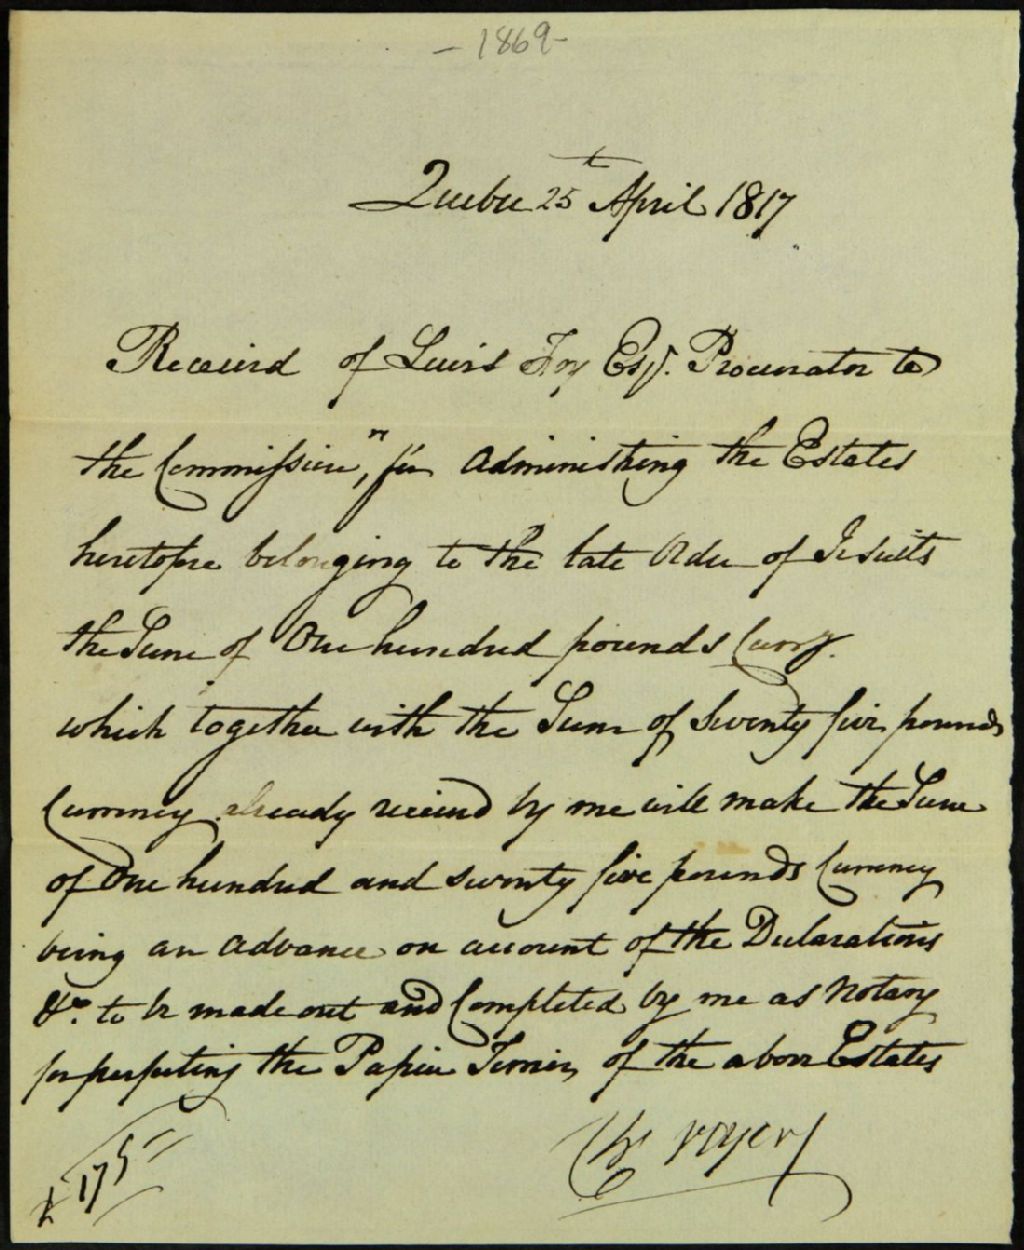 - 1869 -
Quebec 25th April 1817
Received of Lewis Foy Esqr. Procurator to
the Commissionn, for administering the Estates
heretofore belonging to the late Order of Jesuits
the Sum of One hundred pounds Curry.
which together with the Sum of Seventy five pounds
Currency already received by me will make the Sum
of One hundred and seventy five pounds Currency
being an advance on account of the Declarations
&ca. to be made out and Completed by me as Notary
for perfecting the Papier Terrier, of the above Estates
Chs Voyer
£ 175 " "